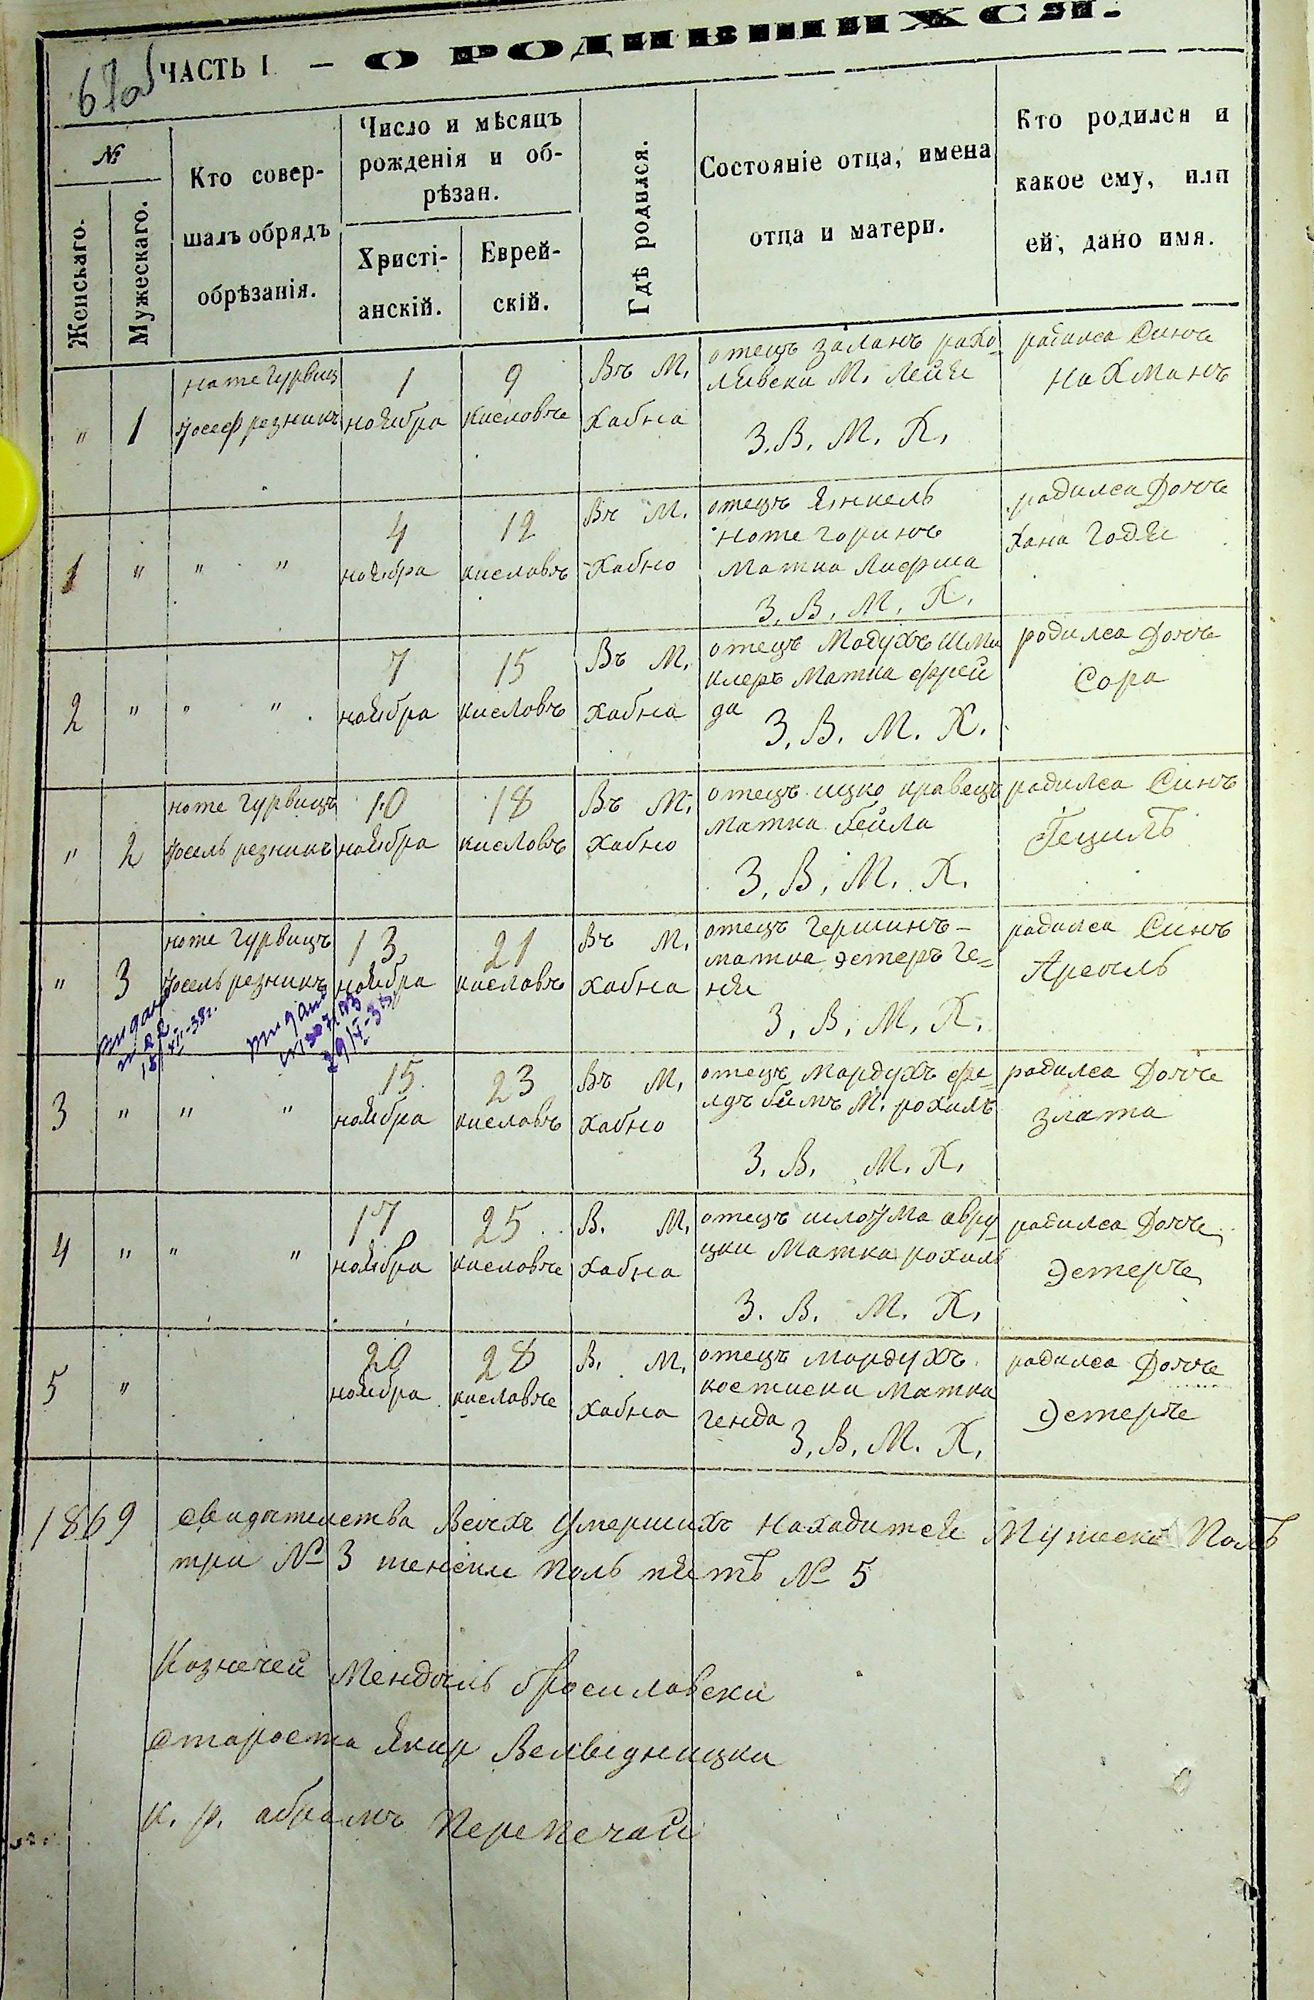 ЧАСТЬ I — О РОДИВШИХСЯ.
№
Женскаго.
Мужескаго.
Кто совер-
шалъ обрядъ
обрѣзанія.
Число и мѣсяцъ
рожденія и об-
рѣзан.
Христі-
анскій.
Еврей-
скій.
Гдѣ родился.
Состояніе отца, имена
отца и матери.
Кто родился и
какое ему, или
ей, дано имя.
" 1
ноте Гурвиц
Іосеф резникъ
1
ноября
9
кисловъ
Въ М.
Хабна
отецъ
М. Лейя
З. В. М. Х.
родилса Синъ
Нахманъ
1 " " "
4
ноября
12
кисловъ
Въ М.
Хабно
отецъ Янкель
Ноте горинъ
Матка
З. В. М. Х.
родилса Дочь
Хана Годя
2 " " "
7
ноября
15
кисловъ
Въ М.
Хабна
отецъ Модухъ шми
клеръ Матка фрей
да З. В. М. Х.
родилса Дочь
Сора
" 2
ноте Гурвицъ
Іосель резникъ
10
ноября
18
кисловъ
Въ М.
Хабно
отецъ ицко кравецъ
Матка бейла
З. В. М. Х.
родилса Синъ
Гециль
" 3
ноте Гурвицъ
Іосель резникъ
13
ноября
21
кисловъ
Въ М.
Хабна
отецъ Гершинъ –
матка эстеръ Ге=
ня
З. В. М. Х.
родилса Синъ
Арель
3 " " "
15
ноября
23
кисловъ
Въ М.
Хабно
отецъ Мордухъ фе-
М. рохиль
З. В. М. Х.
родилса Дочь
злата
4 " " "
17
ноября
25
кисловъ
В. М.
Хабна
отецъ шлоума овру
цки Матка рохиль
З. В. М. Х.
родилса Дочь
Эстеръ
5 "
20
ноября
28
кисловъ
В. М.
Хабна
отецъ Мордухъ
костиски Матка
генда З. В. М. Х.
родилса Дочь
Эстеръ
1869 Умершихъ находится Поль
три № 3 Поль пять № 5
Казначей
Староста Якир
к. р. абрамъ Перепечай